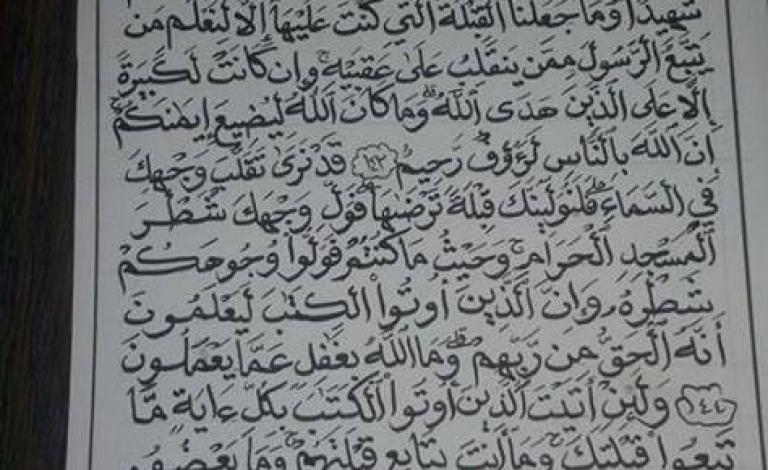 شَهِيدًا وَمَا جَعَلْنَا الْقِبْلَةَ الَّتِي كُنْتَ عَلَيْهَا إِلَّا لِنَعْلَمَ مَنْ
يَتَّبِعُ الرَّسُولَ مِمَّنْ يَنْقَلِبُ عَلَىٰ عَقِبَيْهِ ۚ وَإِنْ كَانَتْ لَكَبِيرَةً
إِلَّا عَلَى الَّذِينَ هَدَى اللَّهُ ۗ وَمَا كَانَ اللَّهُ لِيُضِيعَ إِيمَٰنَكُمْ ۚ
إِنَّ اللَّهَ بِالنَّاسِ لَرَءُوفٌ رَحِيمٌ ١٤٣ قَدْ نَرَىٰ تَقَلُّبَ وَجْهِكَ
فِي السَّمَاءِ ۖ فَلَنُوَلِّيَنَّكَ قِبْلَةً تَرْضَىٰهَا ۚ فَوَلِّ وَجْهَكَ شَطْرَ
الْمَسْجِدِ الْحَرَامِ ۚ وَحَيْثُ مَا كُنْتُمْ فَوَلُّوا وُجُوهَكُمْ
شَطْرَهُ ۗ وَإِنَّ الَّذِينَ أُوتُوا الْكِتَٰبَ لَيَعْلَمُونَ
أَنَّهُ الْحَقُّ مِنْ رَبِّهِمْ ۗ وَمَا اللَّهُ بِغَٰفِلٍ عَمَّا يَعْمَلُونَ
١٤٤ وَلَئِنْ أَتَيْتَ الَّذِينَ أُوتُوا الْكِتَٰبَ بِكُلِّ ءَايَةٍ مَّا
تَبِعُوا قِبْلَتَكَ ۚ وَمَا أَنْتَ بِتَابِعٍ قِبْلَتَهُمْ ۚ وَمَا بَعْضُهُمْ